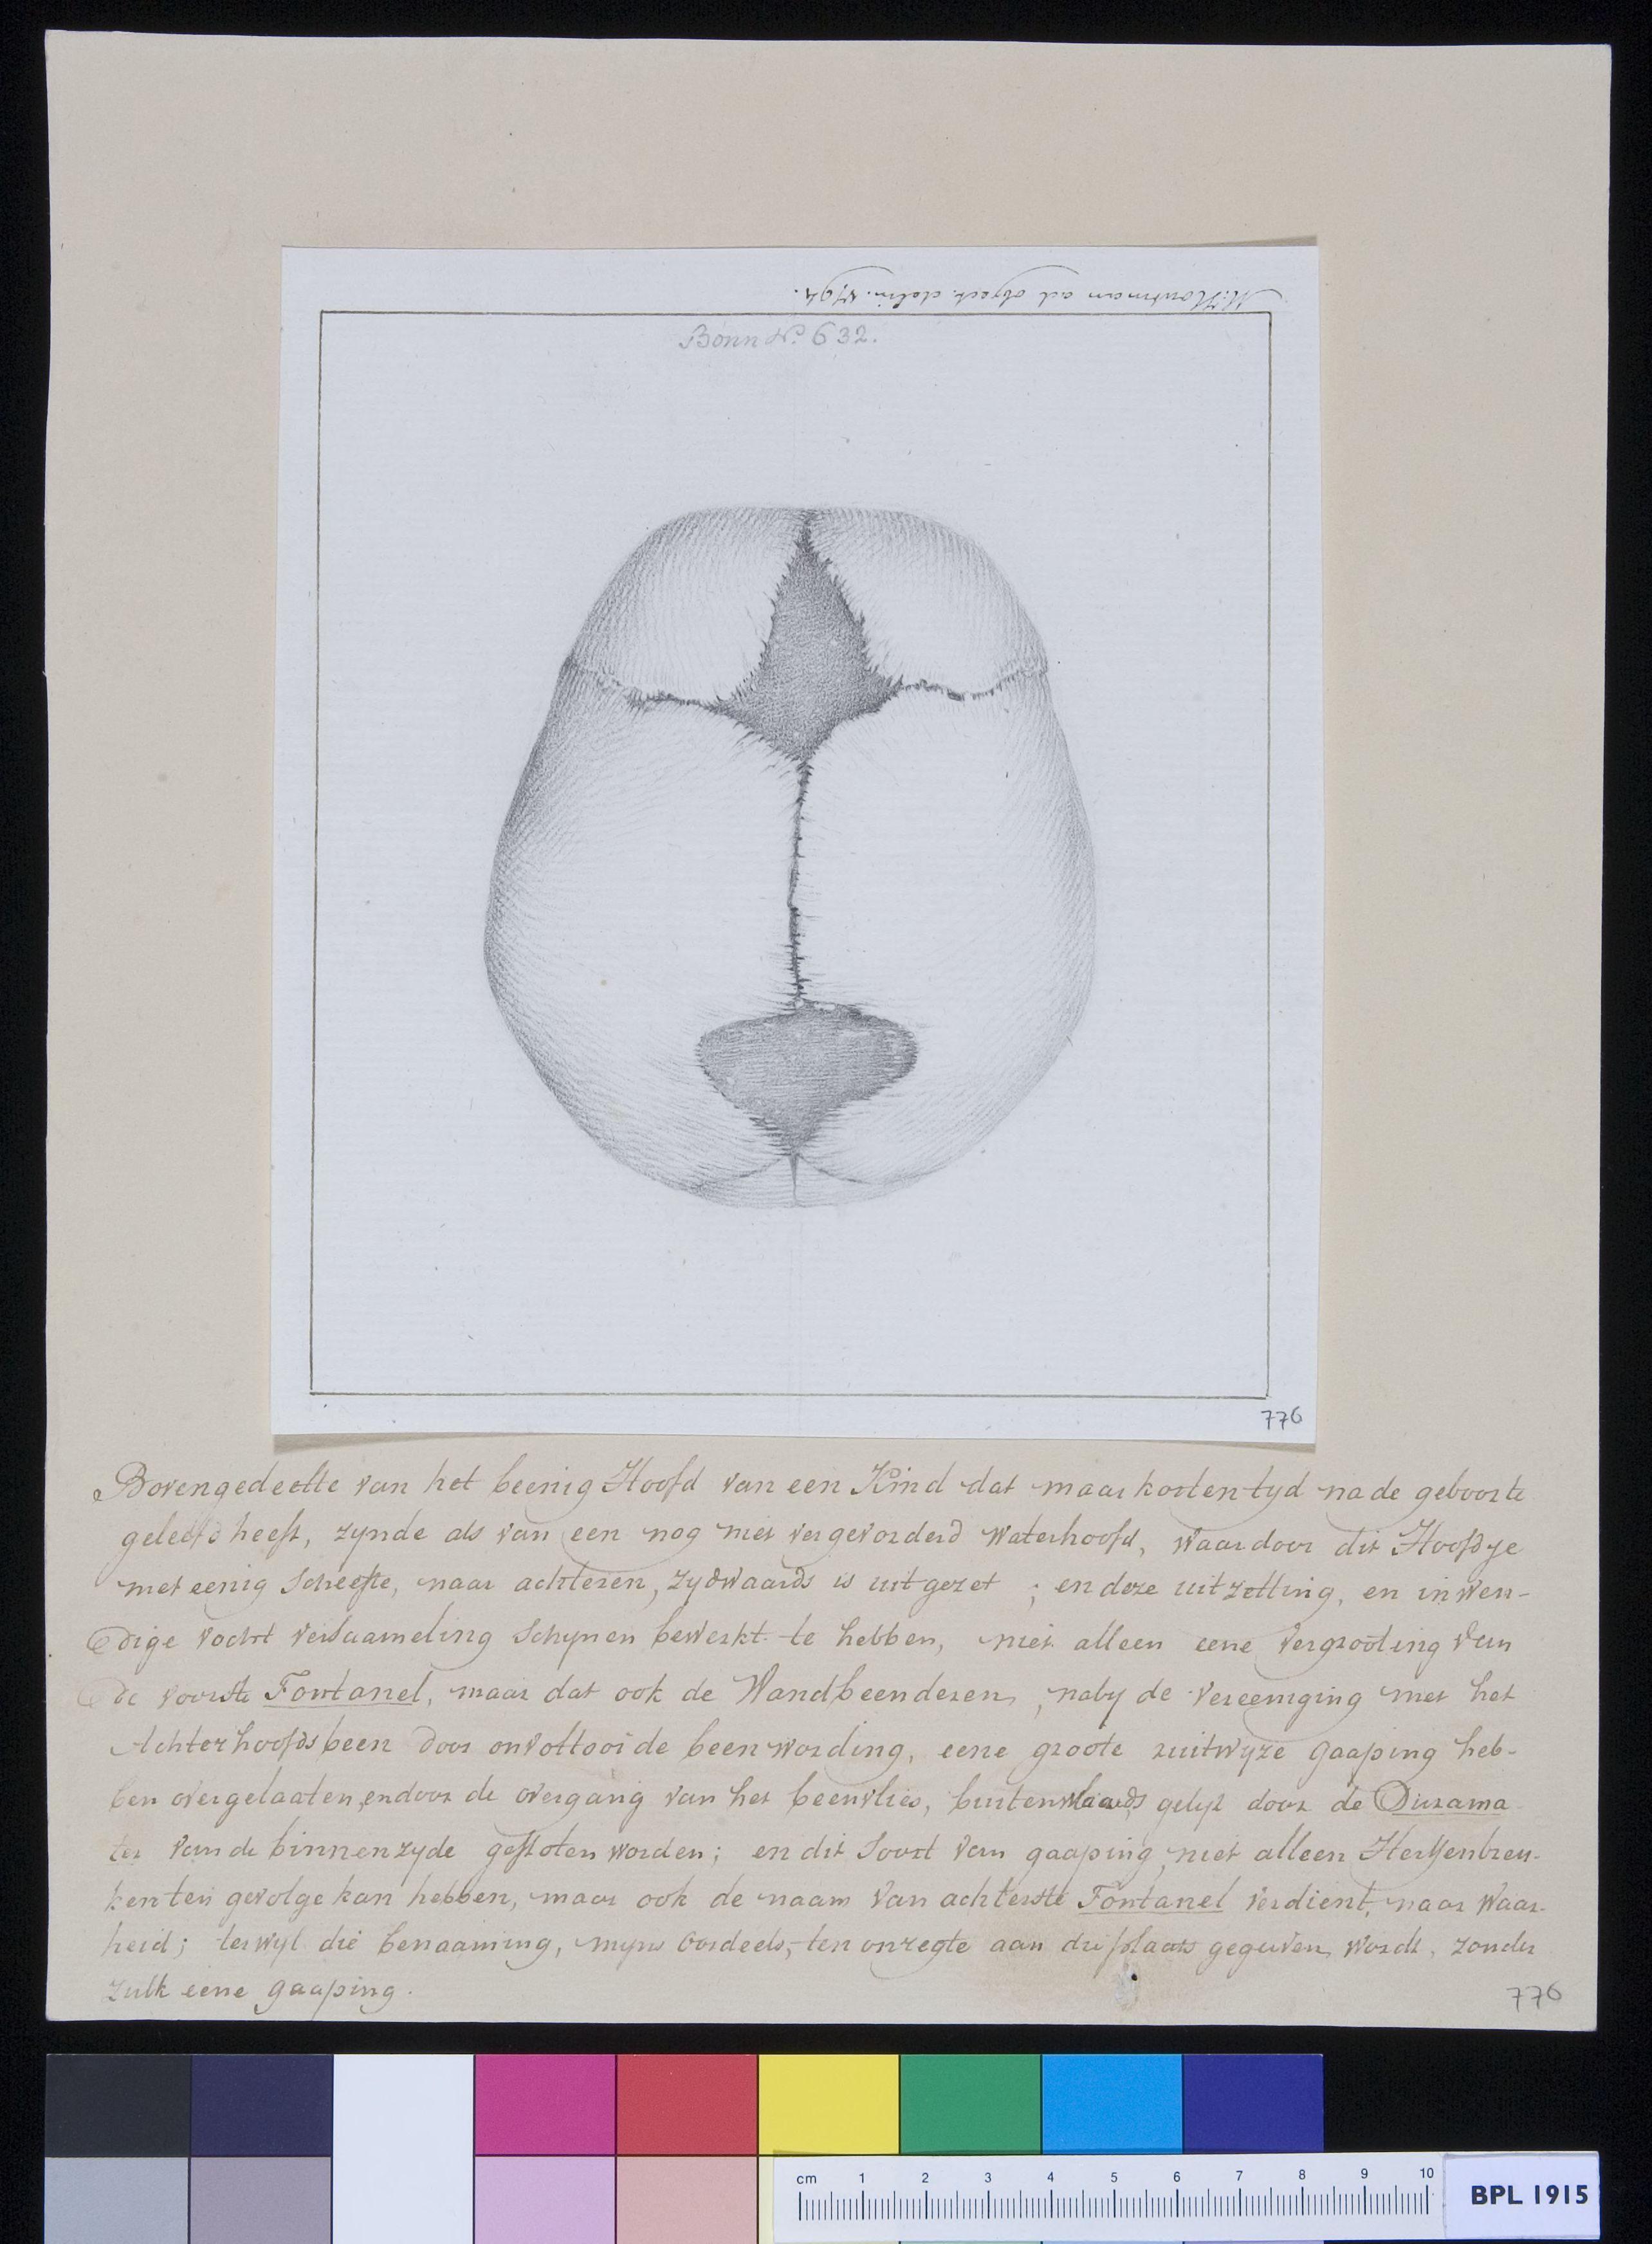 M: Houtman ad object. delin. 1794.
Bonn N.o 632.
776
Bovengedeelte van het beenig Hoofd van een Kind dat maar korten tyd na de geboorte
geleefd heeft, zynde als van een nog niet vergevorderd Waterhoofd, waardoor dit Hoofdje
met eenig Scheefte, naar achteren, zydwaards is uitgezet ; en deze uitzetting, en inwen-
dige vocht versaameling Schynen bewerkt te hebben, niet alleen eene Vergrooting van
de voorste Fontanel, maar dat ook de Wandbeenderen, naby de Vereeniging met het
Achterhoofdsbeen door onvoltooide beenwording, eene groote ruitwyze gaaping heb-
ben overgelaaten, en door de overgang van het beenvlies, buitenwaards gelyk door de Durama
ter van de binnenzyde gesloten worden; en dit Soort van gaaping, niet alleen Hersenbreu-
ken ten gevolge kan hebben, maar ook de naam van achterste Fontanel verdient, naar Waar-
heid; terwyl die benaaming, myns Oordeels, ten onregte aan die plaats gegeven wordt, zonder
zulk eene gaaping.
776
cm 1 2 3 4 5 6 7 8 9 10
BPL 1915